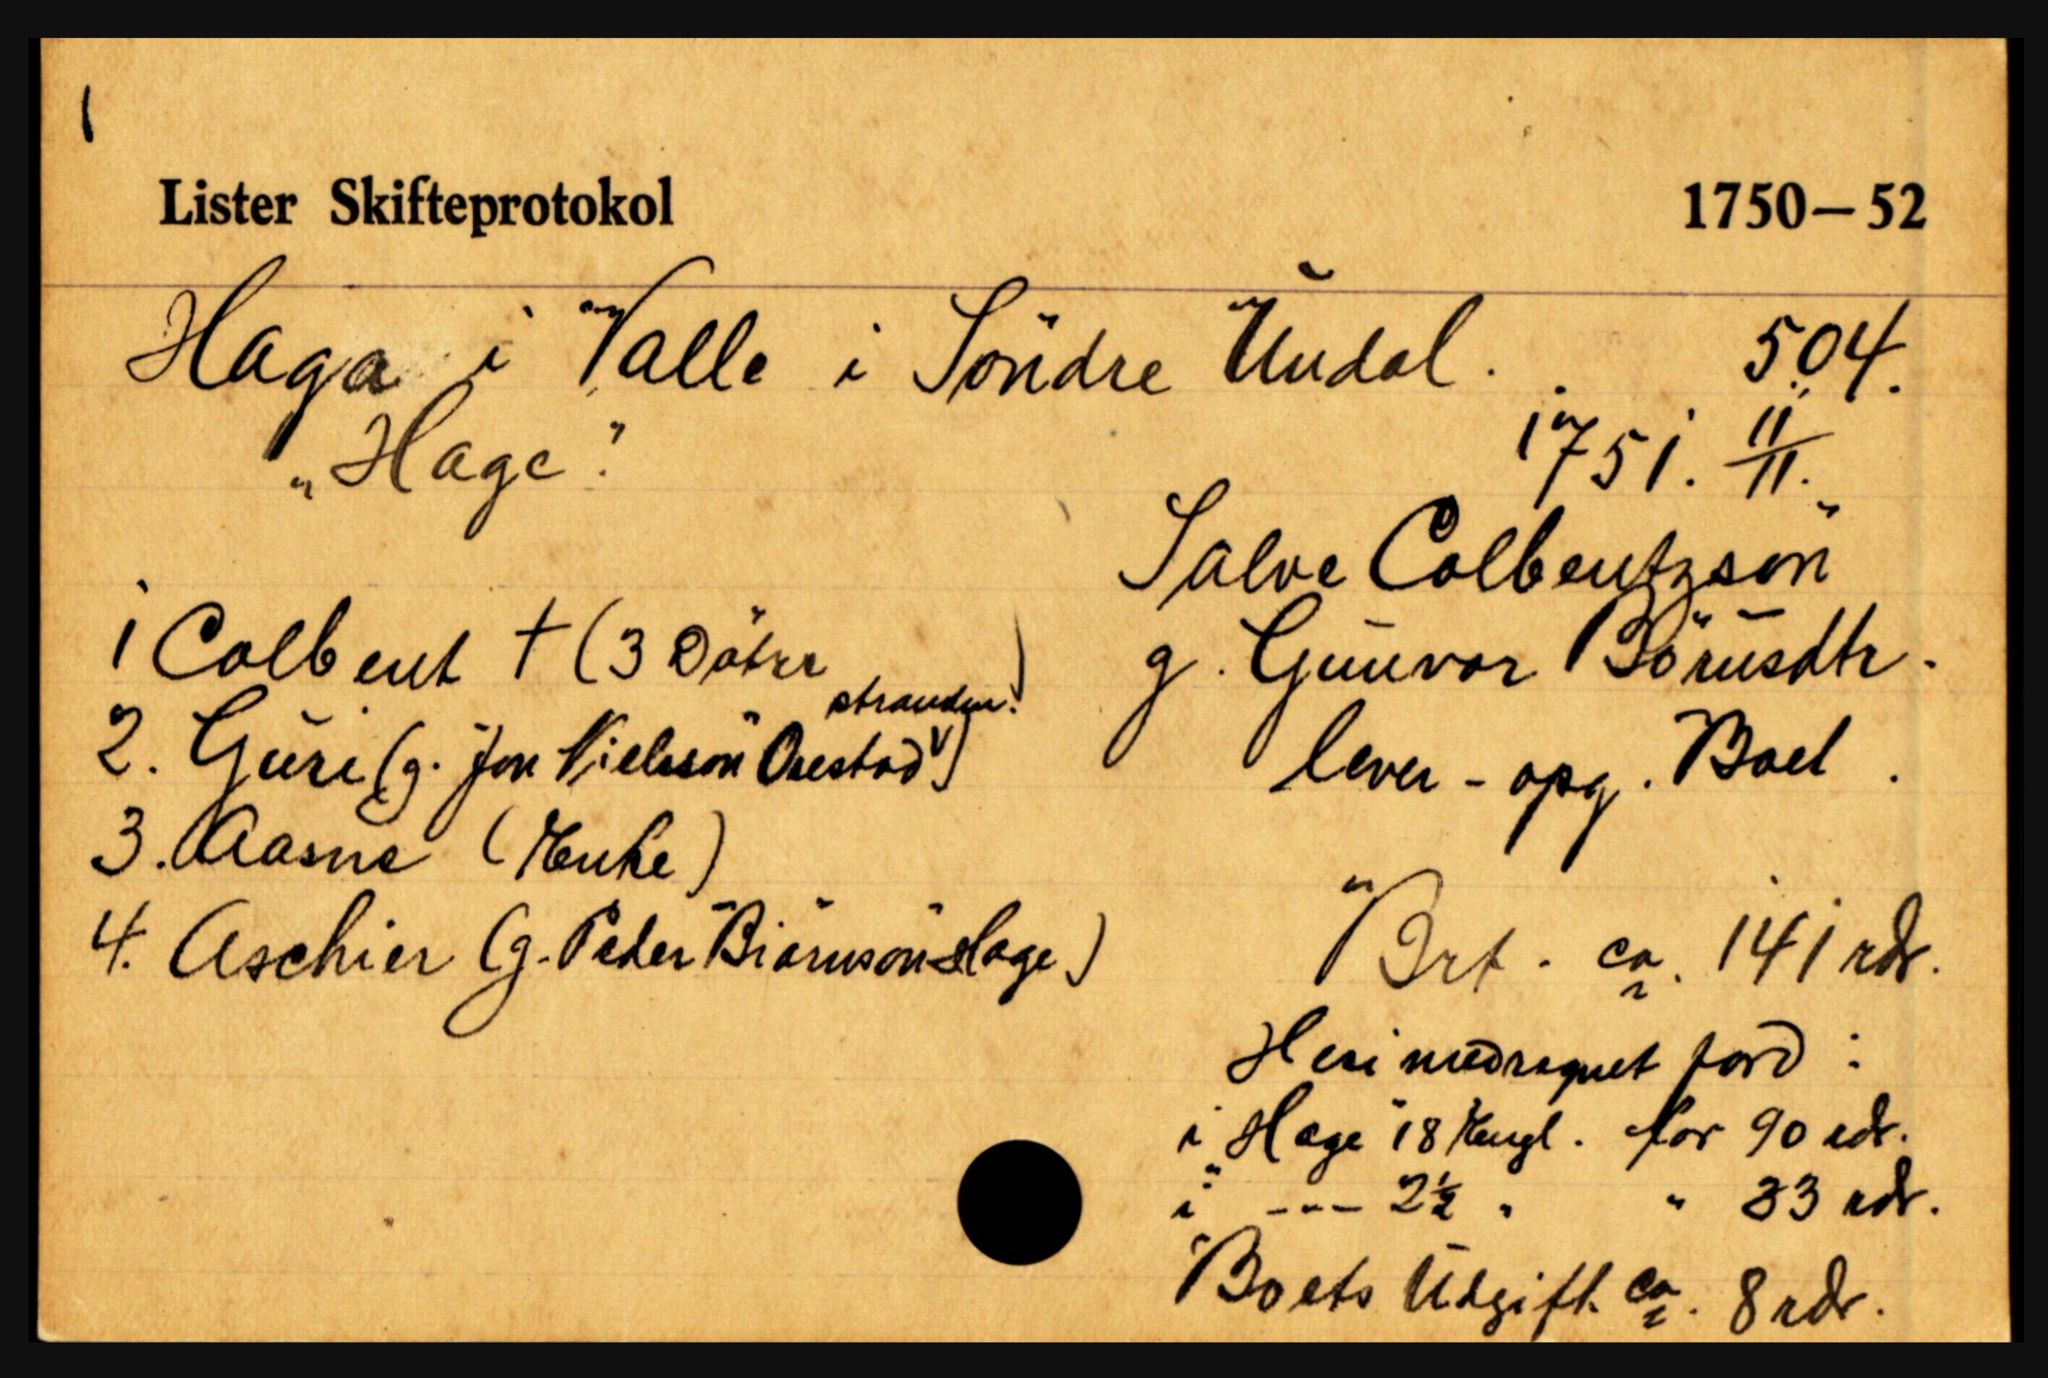 1
Lister Skifteprotokol 1750–52
Haga i Valle i Söndre Undal. 504.
"Hage". 1751. 11/11.
Salve Colbentzsön
g. Gunvor Börnsdtr.
lever - opg. Boet.
1 Colbent † (3 Døtre)
2. Guri (g. Jon Nielssön Osestad stranden.)
3. Aasne (Enke)
4. Aschier (g. Peder Biörnsön Hage)
Brt. ca. 141 rdr.
Heri medregnet jord:
i Hage 18 Engl. for 90 rdr.
i --- 2½ " " 33 rdr.
Boets Udgift ca. 8 rdr.